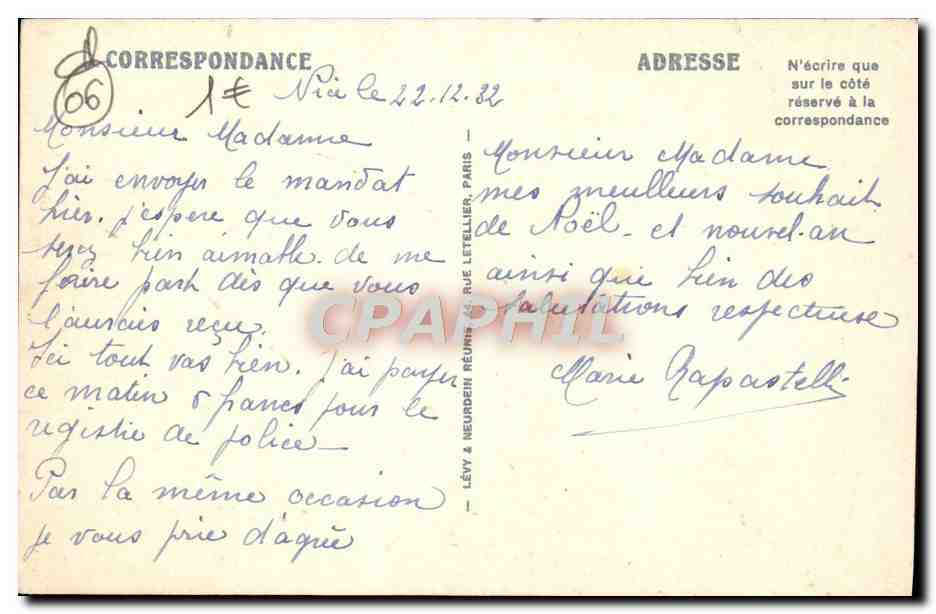 CORRESPONDANCE
06
1€
Nice le 22.12.32
Monsieur Madame
J'ai envoyer le mandat
hier. j'espere que vous
serez bien aimable de me
faire part dès que vous
l'aurais reçu.
Ici tout vas bien. J'ai payer
ce matin 5 francs pour le
registre de police
Par la même occasion
je vous prie d'agrée
— LÉVY & NEURDEIN RÉUNIS, 44, RUE LETELLIER, PARIS —
ADRESSE
N'écrire que
sur le côté
réservé à la
correspondance
Monsieur Madame
mes meulleurs souhait
de Noël - et nouvel-an
ainsi que bien des
salutations respectueuse
Marie Rapastelli
CPAPHIL